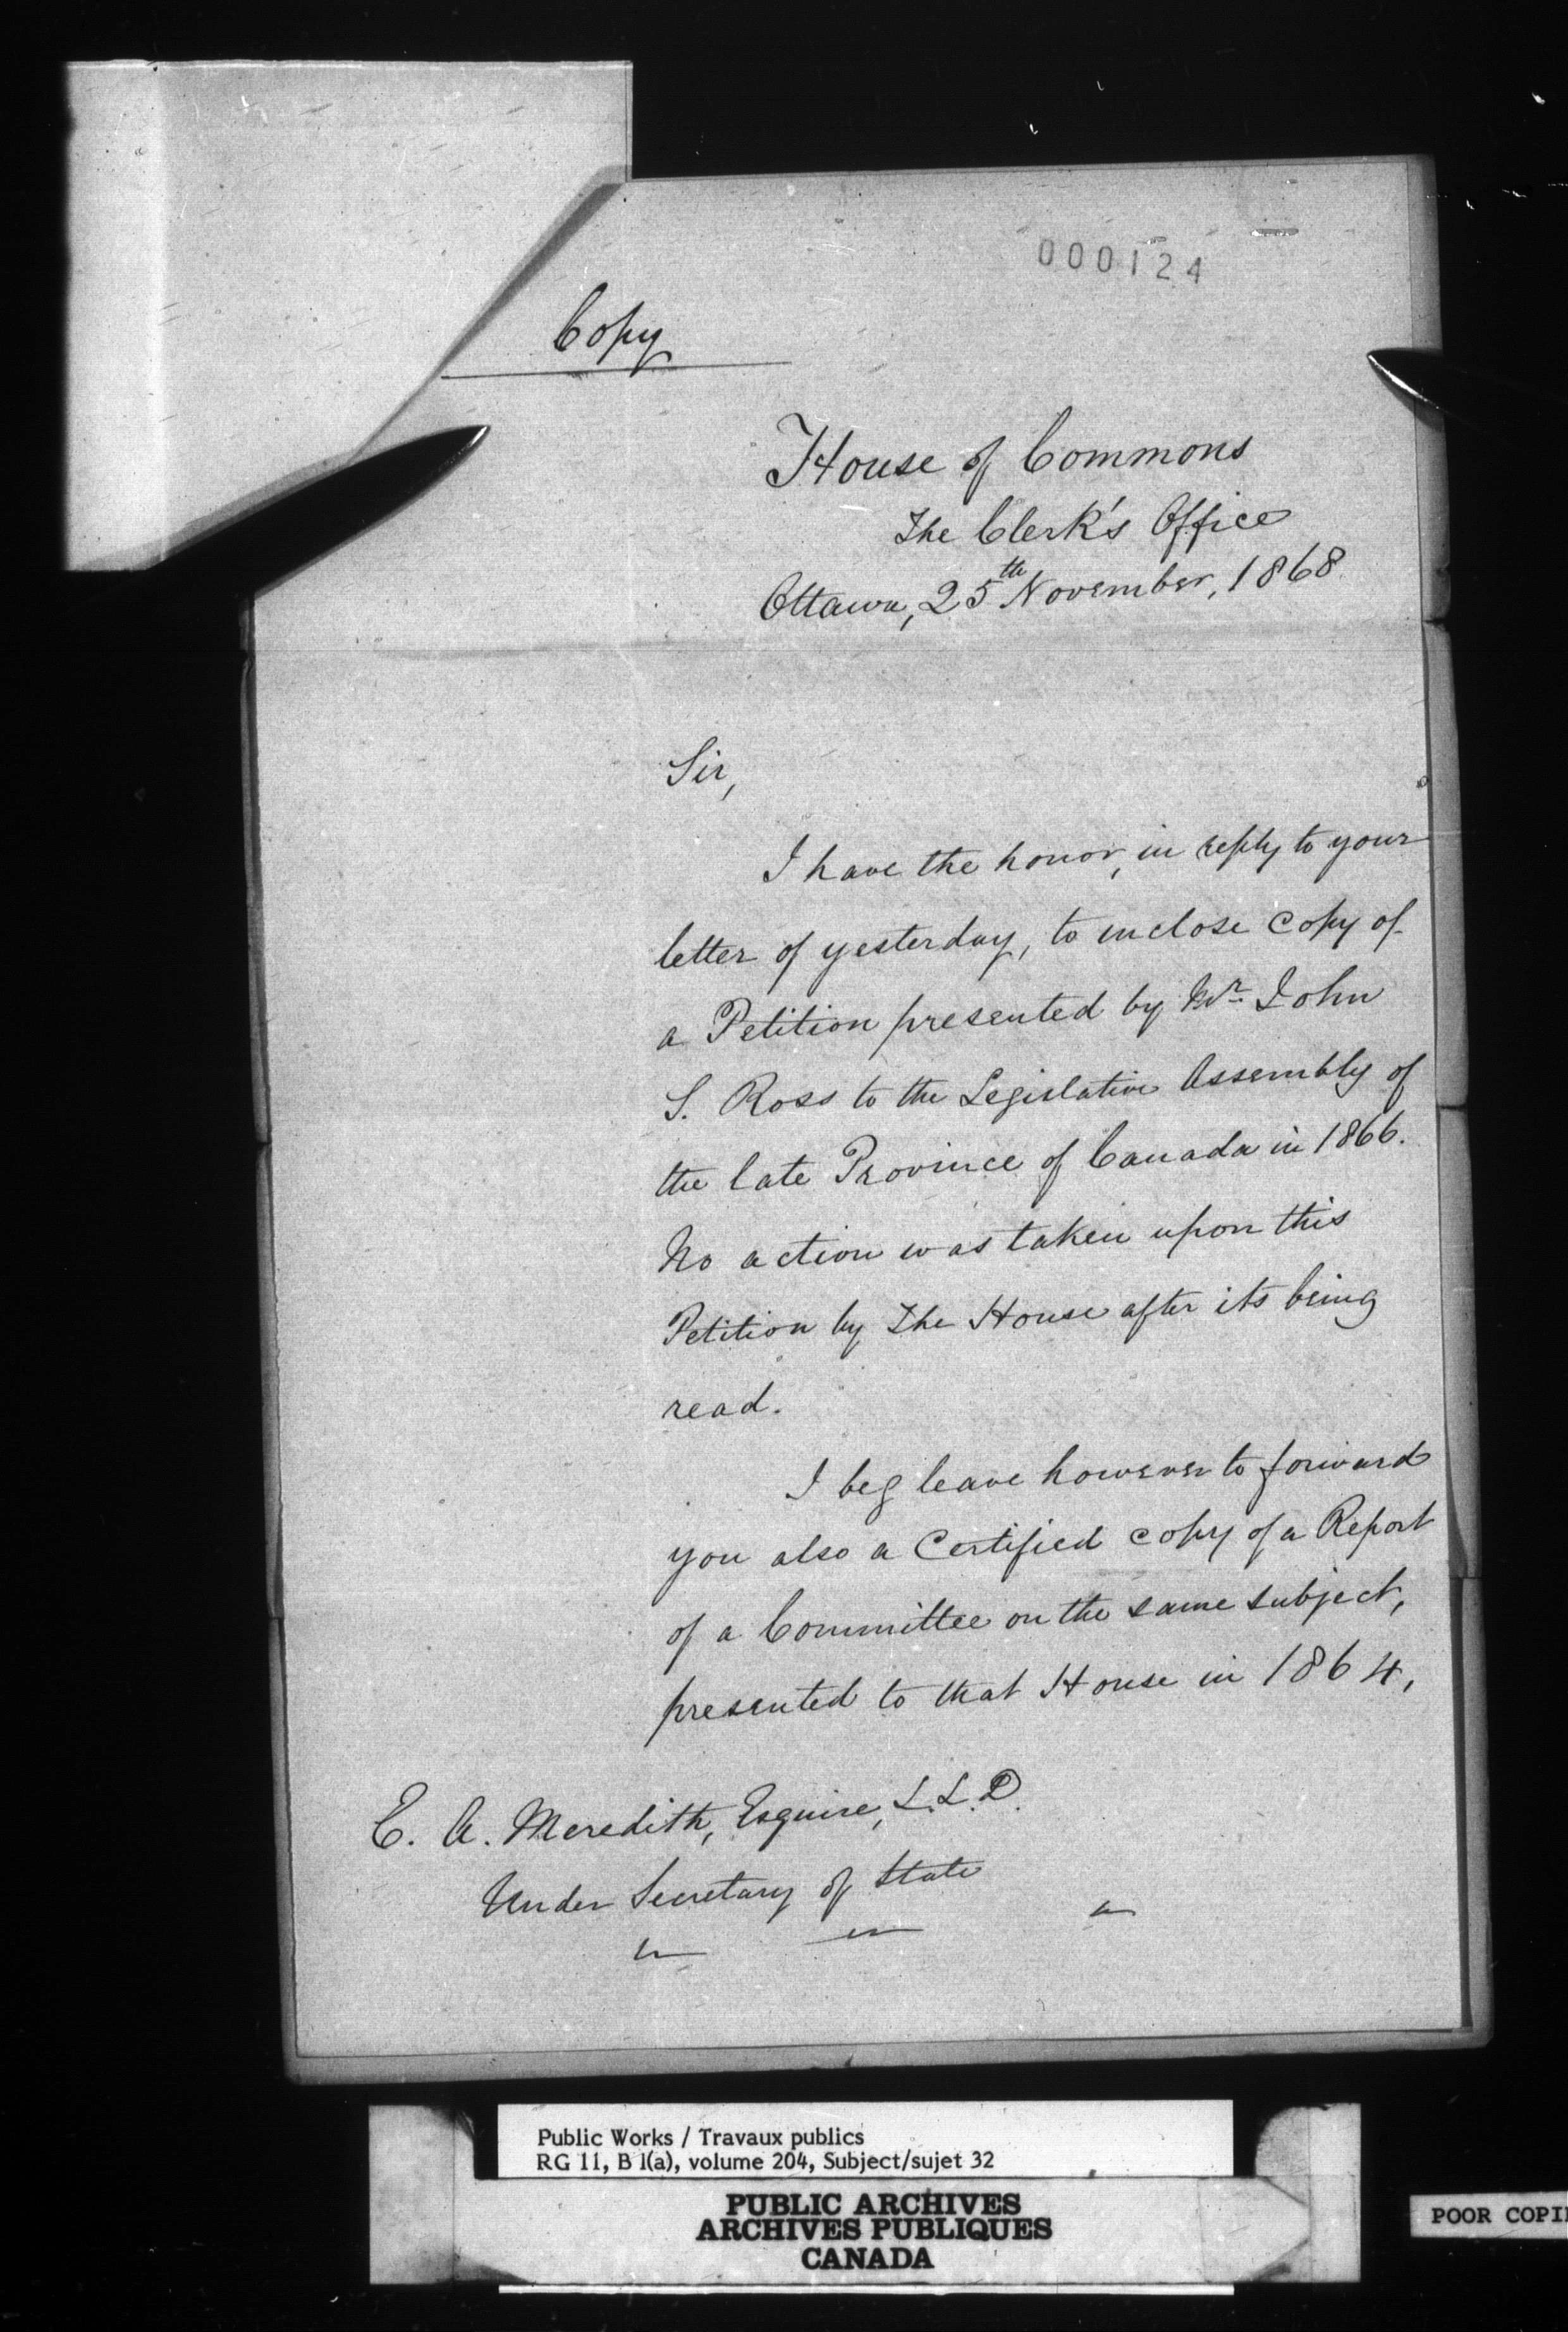 000124
Copy
House of Commons
The Clerk's Office
Ottawa, 25th November, 1868
Sir,
I have the honor, in reply to your
letter of yesterday, to inclose copy of
a Petition presented by Mr. John
S. Ross to the Legislative Assembly of
the late Province of Canada in 1866.
No action was taken upon this
Petition by The House after its being
read.
I beg leave however to forward
you also a Certified copy of a Report
of a Committee on the same subject,
presented to that House in 1864,
E. A. Meredith, Esquire, L.L.D.
Under Secretary of State
Public Works / Travaux publics
RG 11, B 1(a), volume 204, Subject/sujet 32
PUBLIC ARCHIVES
ARCHIVES PUBLIQUES
CANADA
POOR COPI